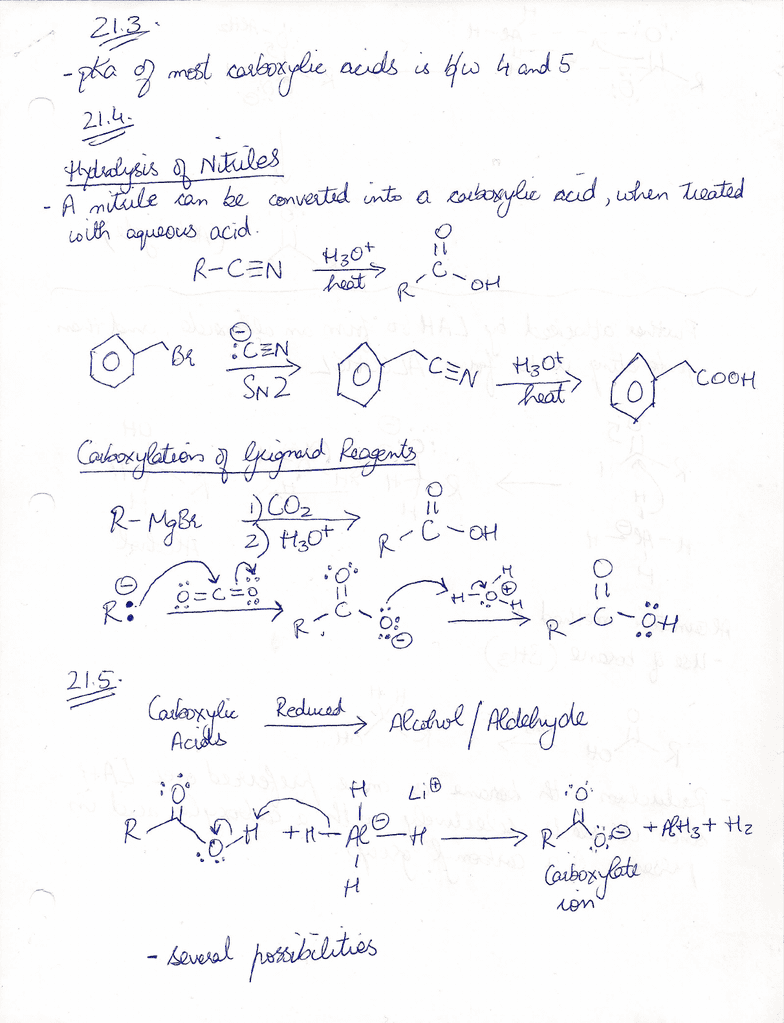 21.3.
- pKa of most carboxylic acids is b/w 4 and 5
21.4.
Hydrolysis of Nitriles
- A nitrile can be converted into a carboxylic acid, when treated
with aqueous acid.
R-C≡N H3O+ heat R C O OH
Br ⊖ :C≡N SN2 C≡N H3O+ heat COOH
Carboxylation of Grignard Reagents
R-MgBr 1) CO2 2) H3O+ R C O OH
R: ⊖ O=C=O R C O O ⊖ H-O-H H ⊕ R C O OH
21.5.
Carboxylic Acids Reduced Alcohol / Aldehyde
R O O H + H-Al-H H H ⊖ Li⊕ R O O ⊖ + AlH3 + H2
Carboxylate
ion
- several possibilities